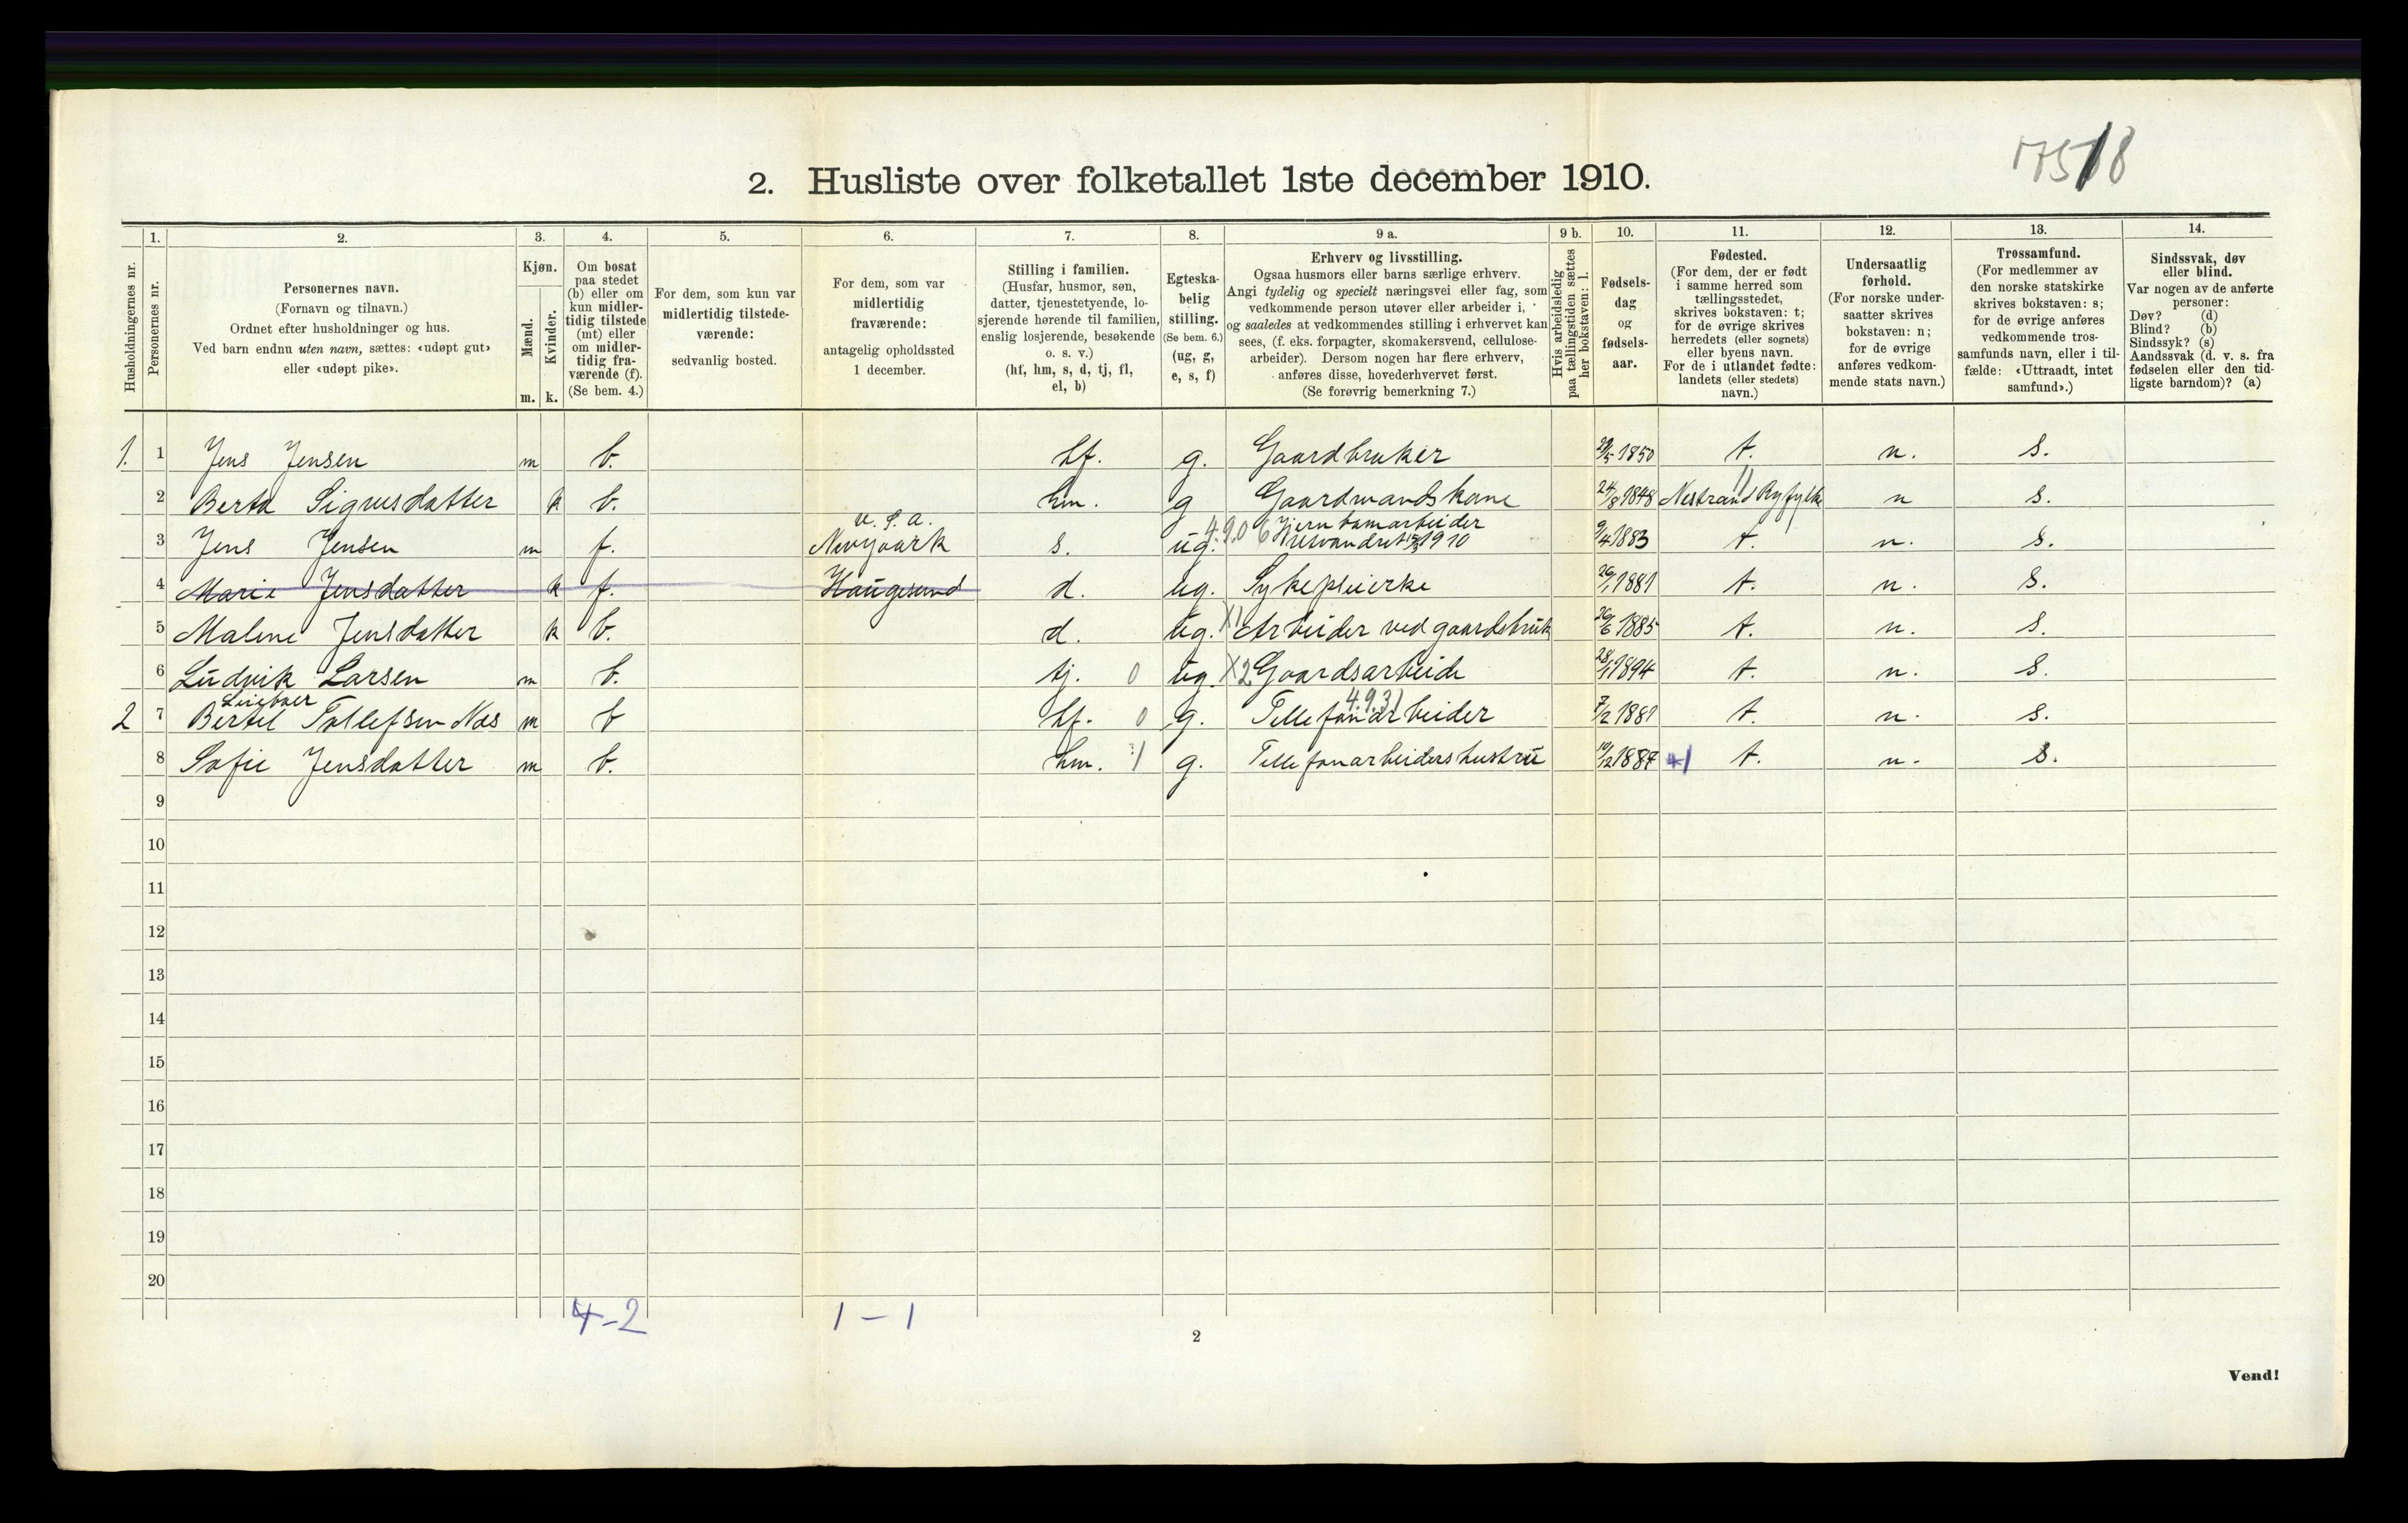 2. Husliste over folketallet 1ste december 1910.
1. 2. 3. 4. 5. 6. 7. 8. 9 a. 9 b. 10. 11. 12. 13. 14.
Husholdningernes nr.
Personernes nr.
Personernes navn.
(Fornavn og tilnavn.)
Ordnet efter husholdninger og hus.
Ved barn endnu uten navn, sættes: «udøpt gut»
eller «udøpt pike».
Kjøn.
Mænd.
Kvinder.
m. k.
Om bosat
paa stedet
(b) eller om
kun midler-
tidig tilstede
(mt) eller
om midler-
tidig fra-
værende (f).
(Se bem. 4.)
For dem, som kun var
midlertidig tilstede-
værende:
sedvanlig bosted.
For dem, som var
midlertidig
fraværende:
antagelig opholdssted
1 december.
Stilling i familien.
(Husfar, husmor, søn,
datter, tjenestetyende, lo-
sjerende hørende til familien,
enslig losjerende, besøkende
o. s. v.)
(hf, hm, s, d, tj, fl,
el, b)
Egteska-
belig
stilling.
(Se bem. 6.)
(ug, g,
e, s, f)
Erhverv og livsstilling.
Ogsaa husmors eller barns særlige erhverv.
Angi tydelig og specielt næringsvei eller fag, som
vedkommende person utøver eller arbeider i,
og saaledes at vedkommendes stilling i erhvervet kan
sees, (f. eks. forpagter, skomakersvend, cellulose-
arbeider). Dersom nogen har flere erhverv,
anføres disse, hovederhvervet først.
(Se forøvrig bemerkning 7.)
Hvis arbeidsledig
paa tællingstiden sættes
her bokstaven: l.
Fødsels-
dag
og
fødsels-
aar.
Fødested.
(For dem, der er født
i samme herred som
tællingsstedet,
skrives bokstaven: t;
for de øvrige skrives
herredets (eller sognets)
eller byens navn.
For de i utlandet fødte:
landets (eller stedets)
navn.)
Undersaatlig
forhold.
(For norske under-
saatter skrives
bokstaven: n;
for de øvrige
anføres vedkom-
mende stats navn.)
Trossamfund.
(For medlemmer av
den norske statskirke
skrives bokstaven: s;
for de øvrige anføres
vedkommende tros-
samfunds navn, eller i til-
fælde: «Uttraadt, intet
samfund».)
Sindssvak, døv
eller blind.
Var nogen av de anførte
personer:
Døv? (d)
Blind? (b)
Sindssyk? (s)
Aandssvak (d. v. s. fra
fødselen eller den tid-
ligste barndom)? (a)
1. 1 Jens Jensen m b. hf. g. Gaardbruker 1850 t. n. s.
2 Berta Sigvusdatter k b. hm. g Gaardmandskone 24/8 1848 Nestrand Ryfylke n s.
U. S. A. 4.9.06 Jern
3 Jens Jensen m f. Nevyaark s. ug. 1910 9/4 1883 t. n. s.
4 Marie Jensdatter k f. Haugesund d. ug. Sykepleierke 26/1 1881 t. n. s.
5 Malene Jensdatter k b. d. ug. X1 Arbeider ved gaardsbruk 26/6 1885 t. n. s.
6 Ludvik Larsen m b. tj. 0 ug. X2 Gaardsarbeide 28/1 1894 t. n. s.
4.9.31
2 7 Bertel Tollefsen Næs m b hf. 0 g. Tellefonarbeider 7/2 1881 t. n. s.
8 Sofie Jensdatter m b. hm. 1 g. Tellefonarbeidershustru 10/12 1887 t. n. s.
9
10
11
12
13
14
15
16
17
18
19
20
4-2 1-1
2
Vend!